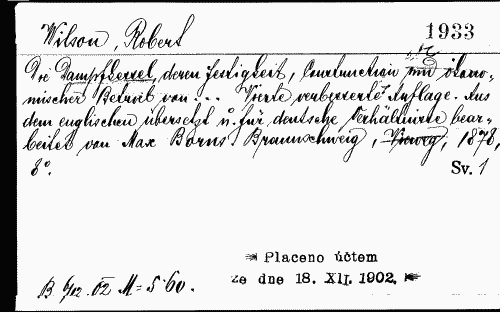 Wilson, Robert
1933
Die Dampfkessel, deren Festigkeit, Construction und ökono-
mischer Betrieb von ... Vierte verbesserte Auflage. Aus
dem englischen übersetzt u. für deutsche Verhältnisse bear-
beitet von Max Borns. Braunschweig, Vieweg, 1878,
8°.
Sv. 1
Placeno účtem
ze dne 18. XII. 1902.
B. 6/12. 02 M = 5·60.